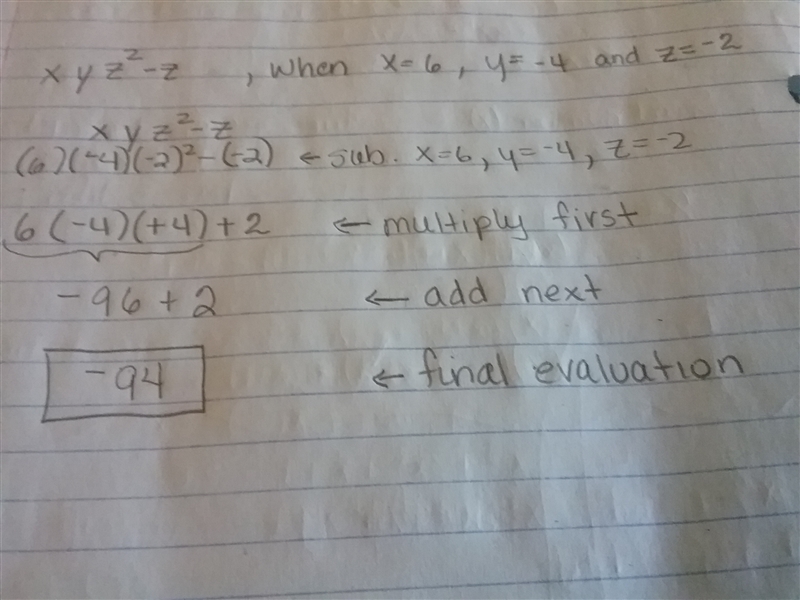 xyz²-z , when x=6, y=-4 and z=-2
xyz²-z
(6)(-4)(-2)²-(-2) ← sub. x=6, y=-4, z=-2
6(-4)(+4)+2 ← multiply first
-96+2 ← add next
-94 ← final evaluation